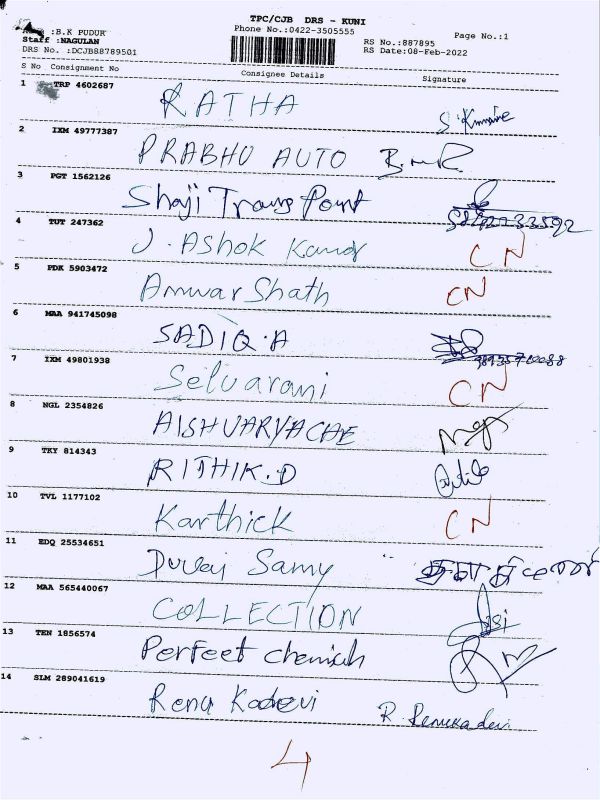 TPC/CJB DRS - KUNI
:B.K PUDUR
Phone No.:0422-3505555
Page No.:1
Staff :NAGULAN
RS No.:887895
DRS No. :DCJB88789501
RS Date:08-Feb-2022
S No Consignment No Consignee Details Signature
1 TRP 4602687
RATHA
2 IXM 49777387
PRABHU AUTO B.m.R.
3 PGT 1562126
Shaji Trans Point
4 TUT 247362
J. Ashok Kumar CN
5 PDK 5903472
Anwar Shath CN
6 MAA 941745098
SADIQ.A
7 IXM 49801938
Selvarani CN
8 NGL 2354826
AISHVARYACAE
9 TKY 814343
RITHIK.D
10 TVL 1177102
Karthick CN
11 EDQ 25534651
Duvai Samy
12 MAA 565440067
COLLECTION
13 TEN 1856574
Perfect
14 SLM 289041619
Renu Kadevi R. Renuka devi
4